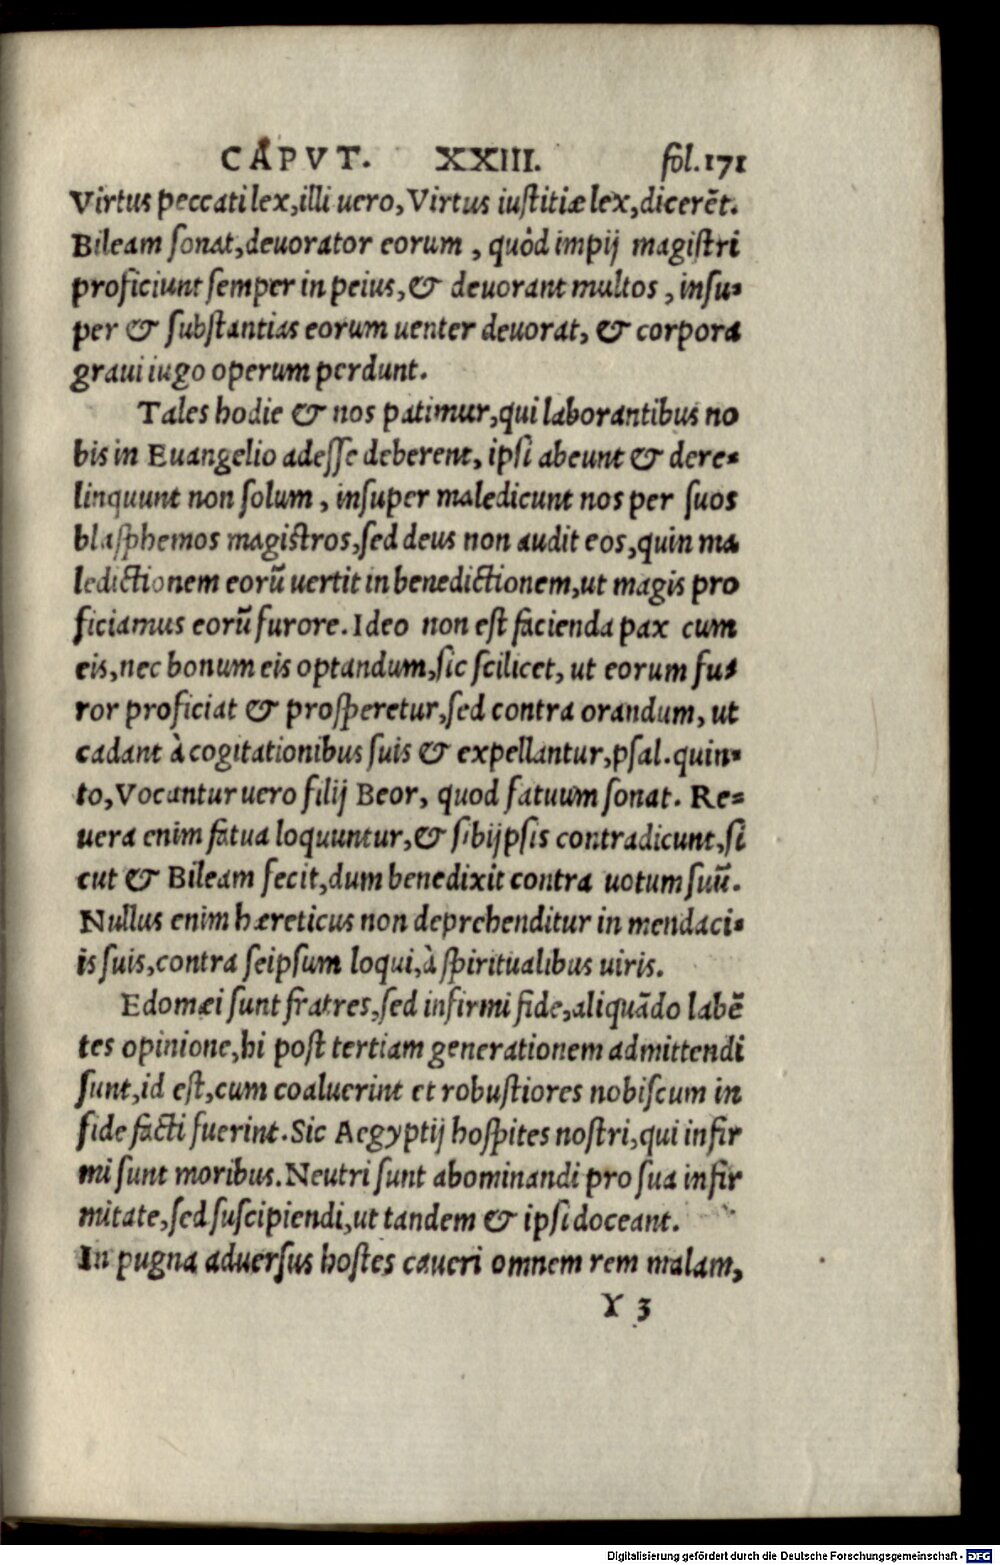 CAPVT. XXIII. fol.171
Virtus peccati lex, illi uero, Virtus iustitiæ lex, dicerēt.
Bileam sonat, deuorator eorum, quòd impij magistri
proficiunt semper in peius, & deuorant multos, insu-
per & substantias eorum uenter deuorat, & corpora
graui iugo operum perdunt.
Tales hodie & nos patimur, qui laborantibus no
bis in Euangelio adesse deberent, ipsi abeunt & dere-
linquunt non solum, insuper maledicunt nos per suos
blasphemos magistros, sed deus non audit eos, quin ma
ledictionem eorū uertit in benedictionem, ut magis pro
ficiamus eorū furore. Ideo non est facienda pax cum
eis, nec bonum eis optandum, sic scilicet, ut eorum fu-
ror proficiat & prosperetur, sed contra orandum, ut
cadant à cogitationibus suis & expellantur, psal. quin-
to, Vocantur uero filij Beor, quod fatuum sonat. Re-
uera enim fatua loquuntur, & sibijpsis contradicunt, si
cut & Bileam fecit, dum benedixit contra uotum suū.
Nullus enim hæreticus non deprehenditur in mendaci-
is suis, contra seipsum loqui, à spiritualibus uiris.
Edomæi sunt fratres, sed infirmi fide, aliquādo labē
tes opinione, hi post tertiam generationem admittendi
sunt, id est, cum coaluerint et robustiores nobiscum in
fide facti fuerint. Sic Aegyptij hospites nostri, qui infir
mi sunt moribus. Neutri sunt abominandi pro sua infir
mitate, sed suscipiendi, ut tandem & ipsi doceant.
In pugna aduersus hostes caueri omnem rem malam,
Y 3
Digitalisierung gefördert durch die Deutsche Forschungsgemeinschaft - DFG